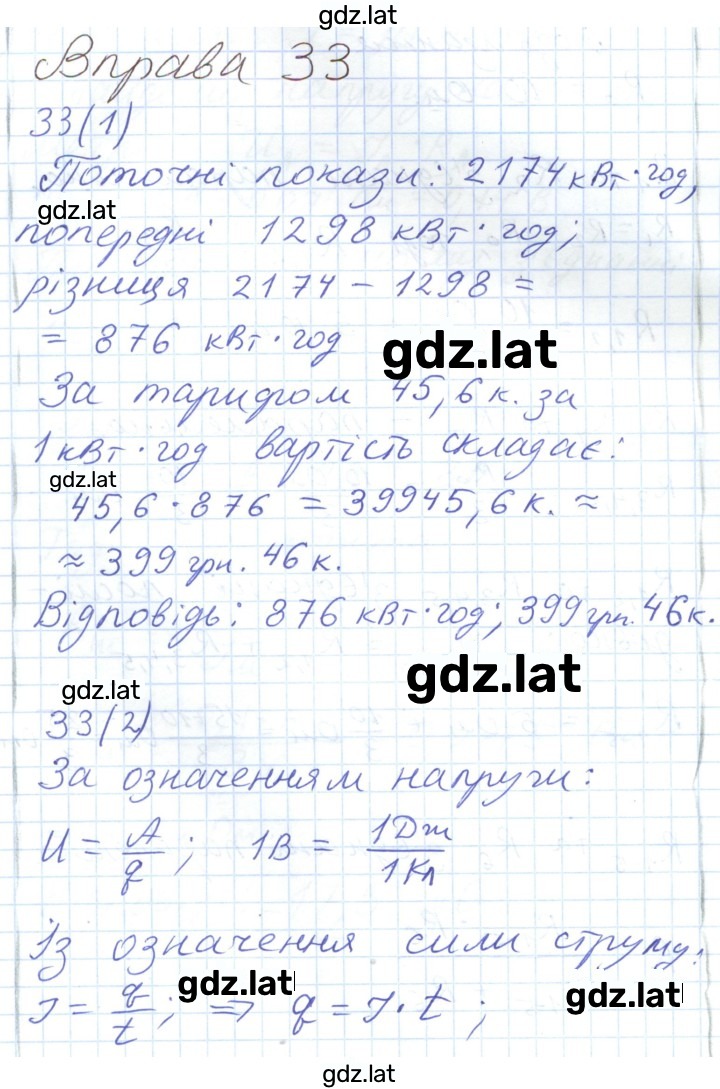 gdz.lat
Вправа 33
33(1)
Поточні покази: 2174 кВт·год,
gdz.lat
попередні 1298 кВт·год;
різниця 2174 – 1298 =
= 876 кВт·год
gdz.lat
За тарифом 45,6 к. за
1 кВт·год вартість складає:
gdz.lat
45,6·876 = 39945,6 к. ≈
≈ 399 грн. 46 к.
Відповідь: 876 кВт·год; 399 грн. 46 к.
gdz.lat
gdz.lat
33(2)
За означенням напруги:
U = A/q ; 1В = 1Дж/1Кл
Із означення сили струму:
gdz.lat
I = q/t ; ⇒ q = I·t ;
gdz.lat
gdz.lat